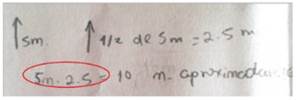 ↑5m. ↑ 1/2 de 5m = 2.5 m
5m. 2.5 = 10 m. aproximadam